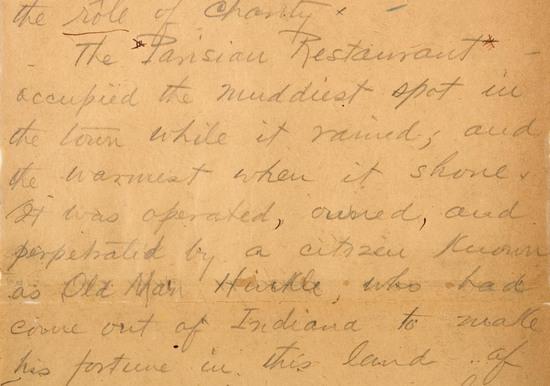 the rôle of charity. –
The "Parisian Restaurant" –
occupied the muddiest spot in
the town while it rained, and
the warmest when it shone.
It was operated, owned, and
perpetrated by a citizen known
as Old Man Hinkle, who had
come out of Indiana to make
his fortune in this land .. of